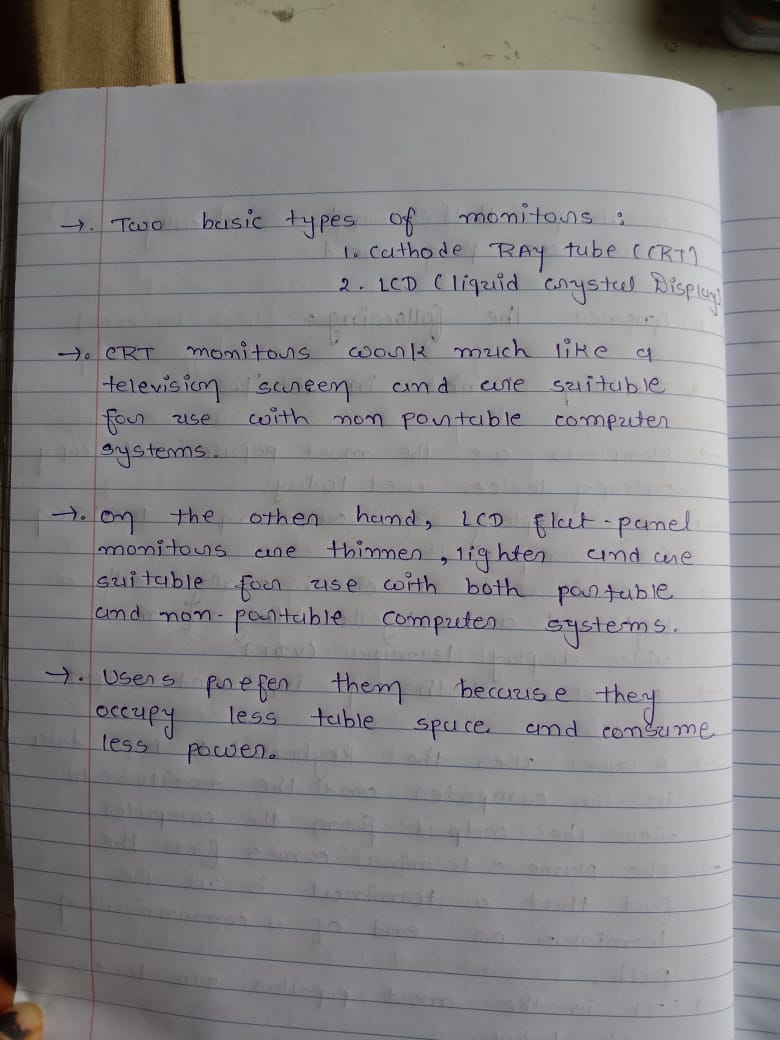 →. Two basic types of monitors :
1. Cathode RAY tube (CRT)
2. LCD (liquid crystal Display)
→. CRT monitors work much like a
television screen and are suitable
for use with non portable computer
systems.
→. On the other hand, LCD flat-panel
monitors are thinner, lighter and are
suitable for use with both portable
and non-portable computer systems.
→. Users prefer them because they
occupy less table space and consume
less power.